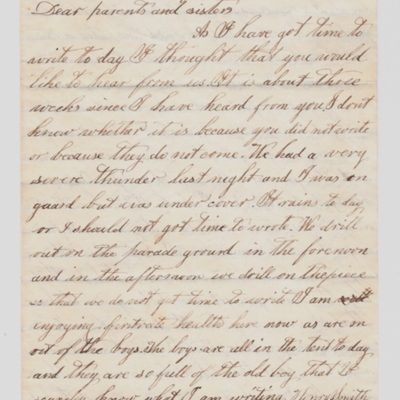 Dear parents and sisters
As I have got time to
write to day I thought that you would
like to hear from us. It is about three
weeks since I have heard from you I dont
know whether it is because you did not wrote
or because they do not come. We had a very
severe thunder last night and I was on
guard but was under cover. It rains to day
or I should not got time to wrote. We drill
out on the parade ground in the forenoon
and in the afternoon we drill on the piece
so that we do not get time to write I am
enjoying firstrate health here now as are m
out of the boys. The boys are all in the tent to day
and they are so full of the old boy that I
know what I am writing